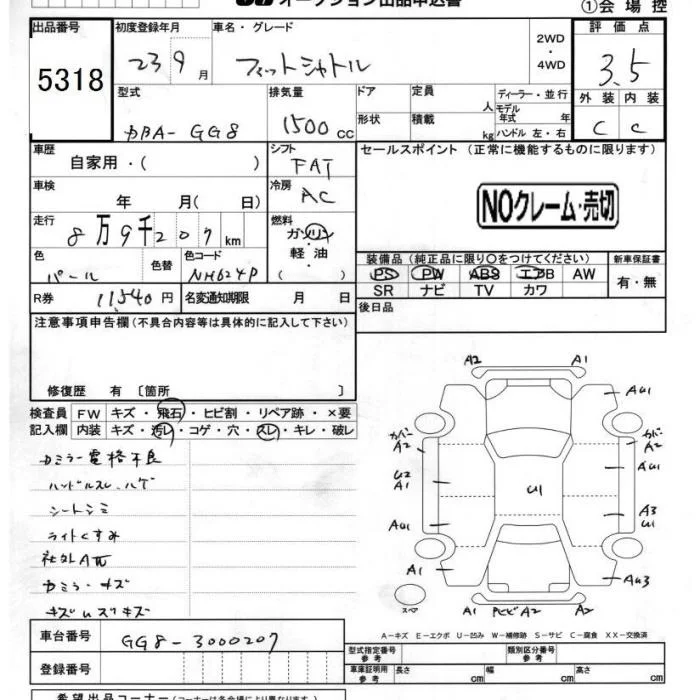 オークション出品申込書
①会場控
出品番号 初度登録年月 車名・グレード 評価点
5318 23 9月 フィットシャトル 2WD・4WD 3.5
型式 排気量 ドア 定員 人 ディーラー・並行 外装 内装
DBA-GG8 1500cc 形状 積載 kg モデル年式 年 C C
ハンドル 左・右
車歴 シフト セールスポイント(正常に機能するものに限ります)
自家用・( ) FAT
車検 冷房 NOクレーム・売切
年 月( 日) AC
走行 燃料
8万9千207km ガソリン
色 色替 色コード 軽油 装備品(純正品に限り○をつけてください) 新車保証書
パール NH624P ( ) PS PW ABS エアB AW 有・無
R券 11,540円 名変通知期限 月 日 SR ナビ TV カワ
注意事項申告欄(不具合内容等は具体的に記入して下さい) 後日品
修復歴 有 〔箇所 〕
検査員 FW キズ・飛石・ヒビ割・リペア跡・×要
記入欄 内装 キズ・汚レ・コゲ・穴・スレ・キレ・破レ
A2 A1
AU1
カバーA2 カバーA2
U2 A1 AU1
U1
AU1 A3 U1
A1 AU3
スペア
A1 A2 A2
ハンドルスレ、ハゲ
シートシミ
ライトくすみ
社外A
A-キズ E-エクボ U-凹み W-補修跡 S-サビ C-腐食 XX-交換済
車台番号 GG8-3000207
登録番号
型式指定番号 参考 類別区分番号 参考
車庫証明用 参考 長さ cm 幅 cm 高さ cm
希望出品コーナー